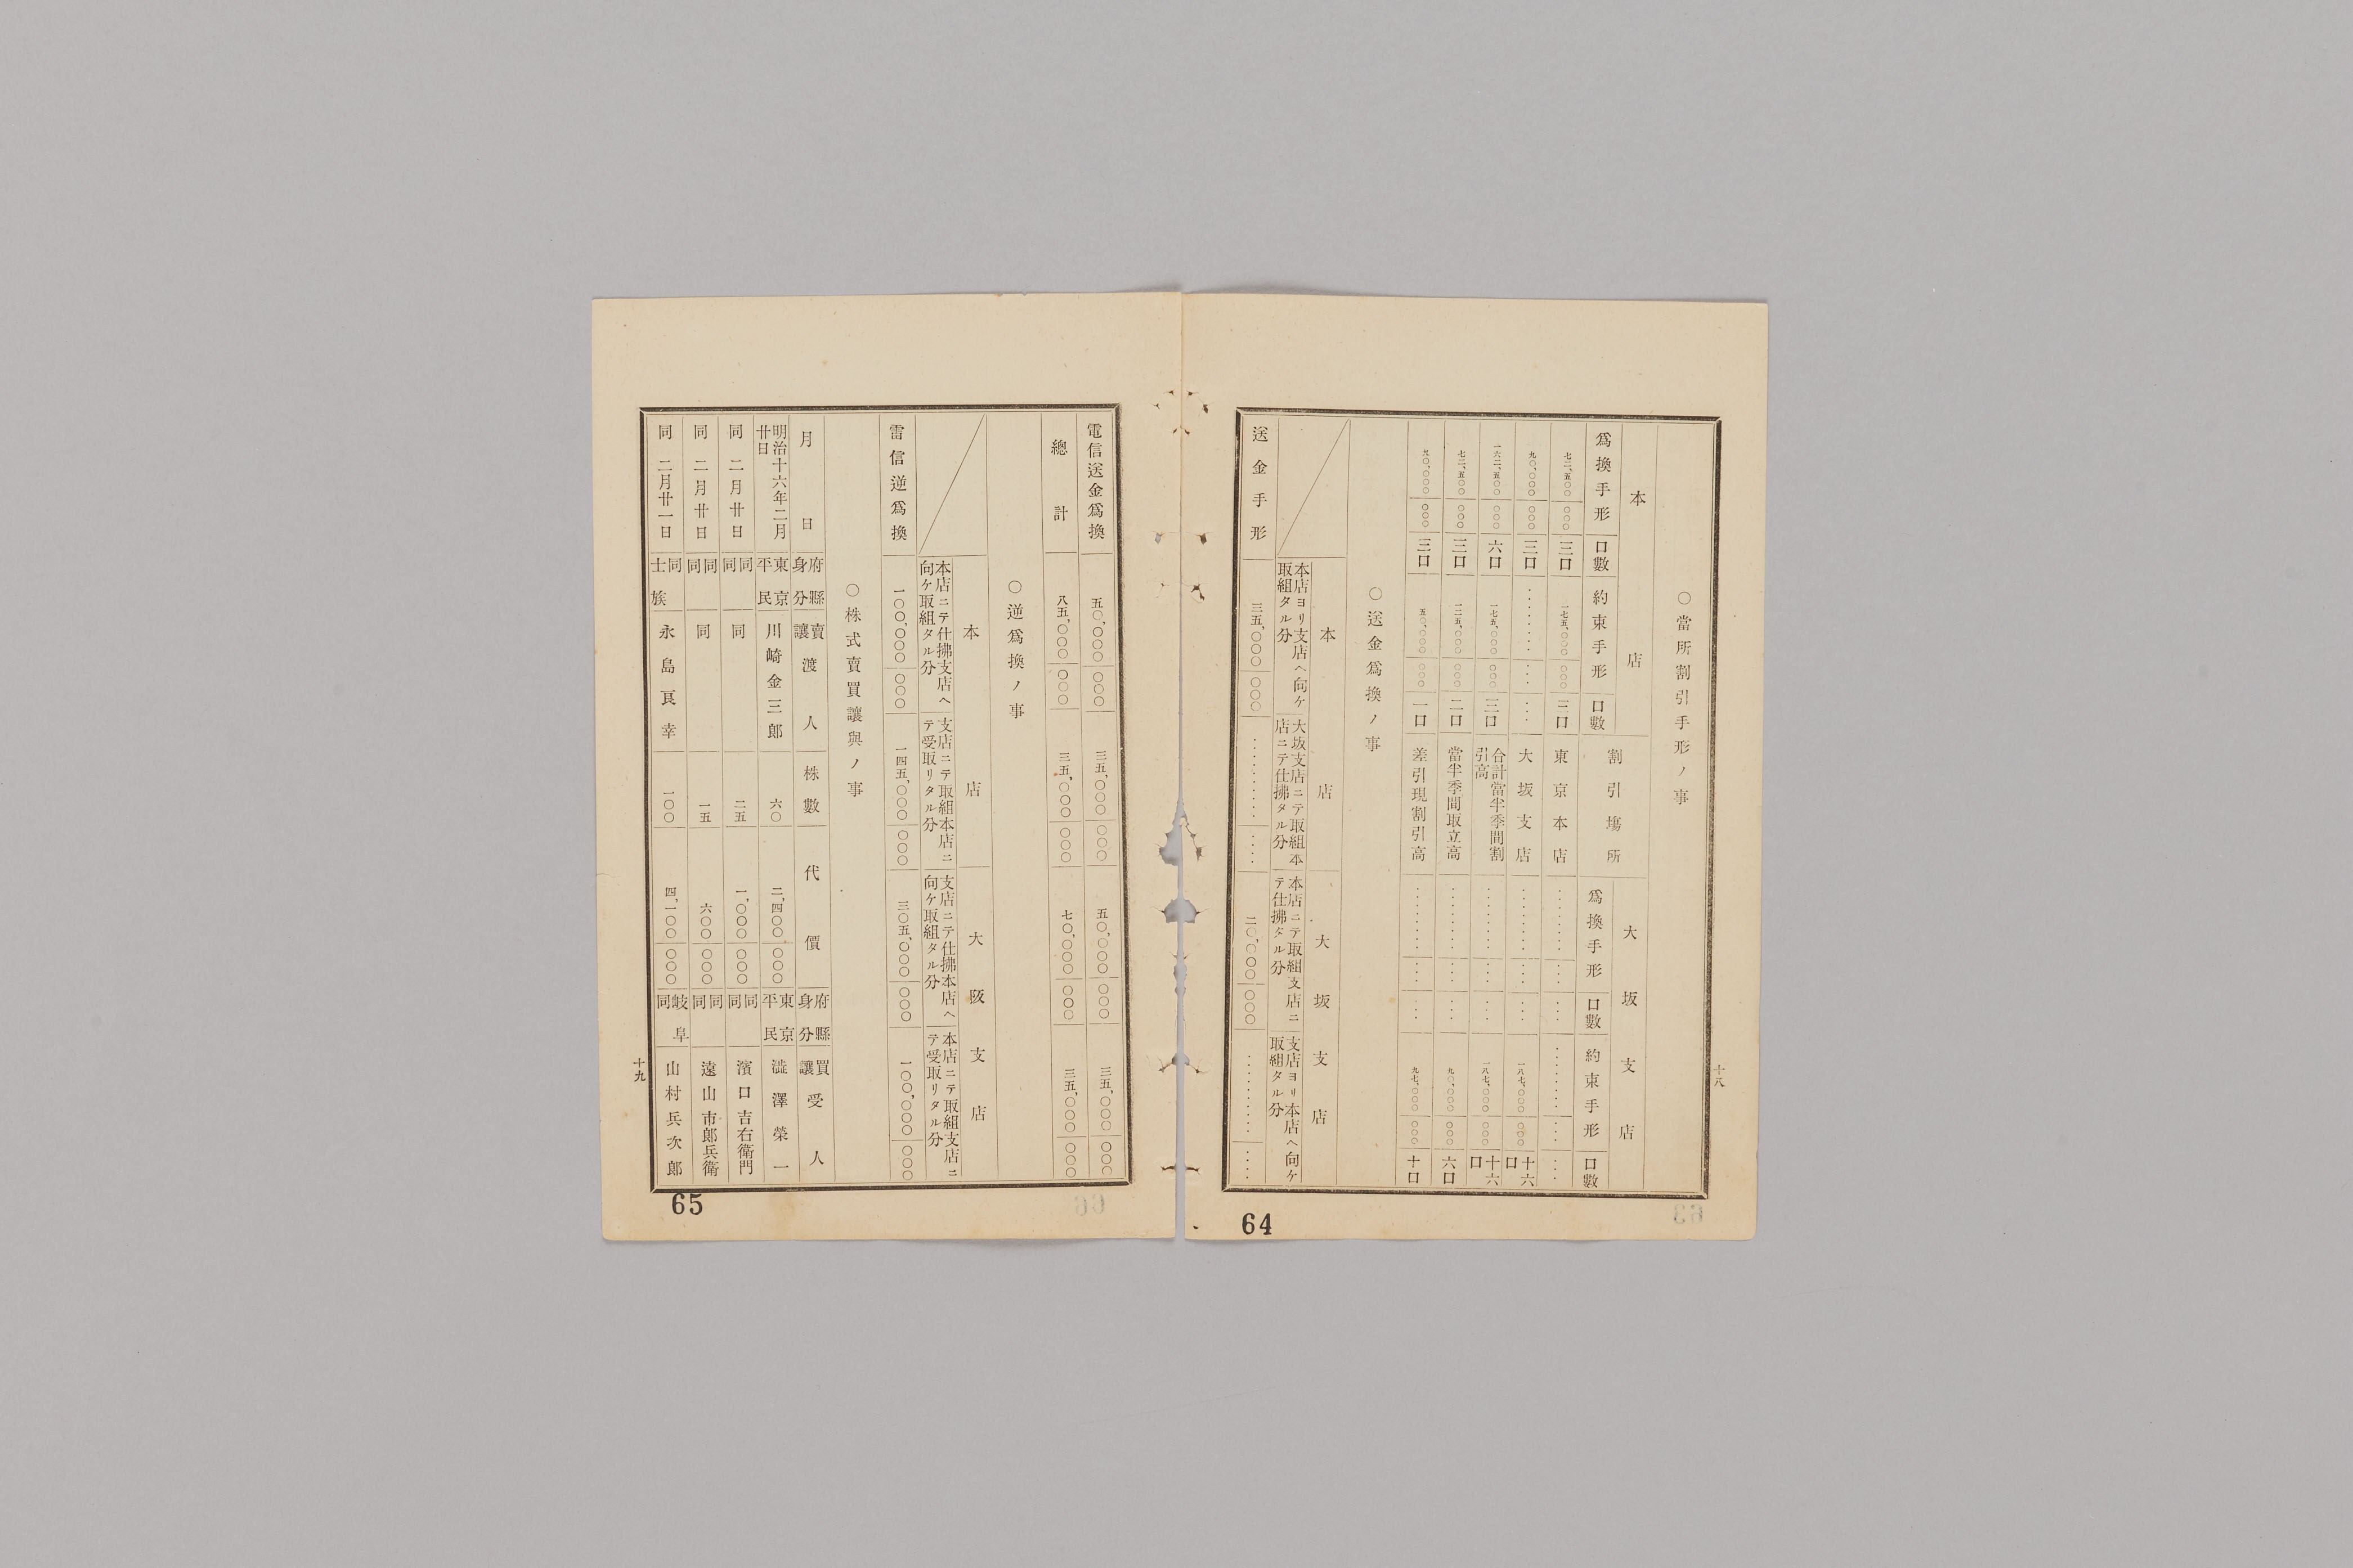 ○當所割引手形ノ事
本店
爲換手形 口數 約束手形 口數
割引塲所
大坂支店
爲換手形 口數 約束手形 口數
七二、五〇〇 〇〇〇 三口 一七五、〇〇〇 〇〇〇 三口 東京本店 ……… … … ……… … …
九〇、〇〇〇 〇〇〇 三口 ……… … … 大坂支店 ……… … … 一八七、〇〇〇 〇〇〇 十六口
一六二、五〇〇 〇〇〇 六口 一七五、〇〇〇 〇〇〇 三口 合計當半季間割引高 ……… … … 一八七、〇〇〇 〇〇〇 十六口
七二、五〇〇 〇〇〇 三口 一二五、〇〇〇 〇〇〇 二口 當半季間取立高 ……… … … 九〇、〇〇〇 〇〇〇 六口
九〇、〇〇〇 〇〇〇 三口 五〇、〇〇〇 〇〇〇 一口 差引現割引高 ……… … … 九七、〇〇〇 〇〇〇 十口
○送金爲換ノ事
本店
大坂支店
本店ヨリ支店ヘ向ケ取組タル分
大坂支店ニテ取組本店ニテ仕拂タル分
本店ニテ取組支店ニテ仕拂タル分
支店ヨリ本店ヘ向ケ取組タル分
送金手形 三五、〇〇〇 〇〇〇 ……… … 二〇、〇〇〇 〇〇〇 ……… …
十八
64
電信送金爲換 五〇、〇〇〇 〇〇〇 三五、〇〇〇 〇〇〇 五〇、〇〇〇 〇〇〇 三五、〇〇〇 〇〇〇
總計 八五、〇〇〇 〇〇〇 三五、〇〇〇 〇〇〇 七〇、〇〇〇 〇〇〇 三五、〇〇〇 〇〇〇
○逆爲換ノ事
本店
大阪支店
本店ニテ仕拂支店ヘ向ケ取組タル分
支店ニテ取組本店ニテ受取リタル分
支店ニテ仕拂本店ヘ向ケ取組タル分
本店ニテ取組支店ニテ受取リタル分
雷信逆爲換 一〇〇、〇〇〇 〇〇〇 一四五、〇〇〇 〇〇〇 三〇五、〇〇〇 〇〇〇 一〇〇、〇〇〇 〇〇〇
○株式賣買讓與ノ事
月日 府縣身分 賣讓渡人 株數 代價 府縣身分 買讓受人
明治十六年二月廿日 東京平民 川崎金三郎 六〇 二、四〇〇 〇〇〇 東京平民 澁澤榮一
同 二月廿日 同同 同 二五 一、〇〇〇 〇〇〇 同同 濱口吉右衛門
同 二月廿日 同同 同 一五 六〇〇 〇〇〇 同同 遠山市郎兵衛
同 二月廿一日 同士族 永島良幸 一〇〇 四、一〇〇 〇〇〇 岐阜同 山村兵次郎
十九
65